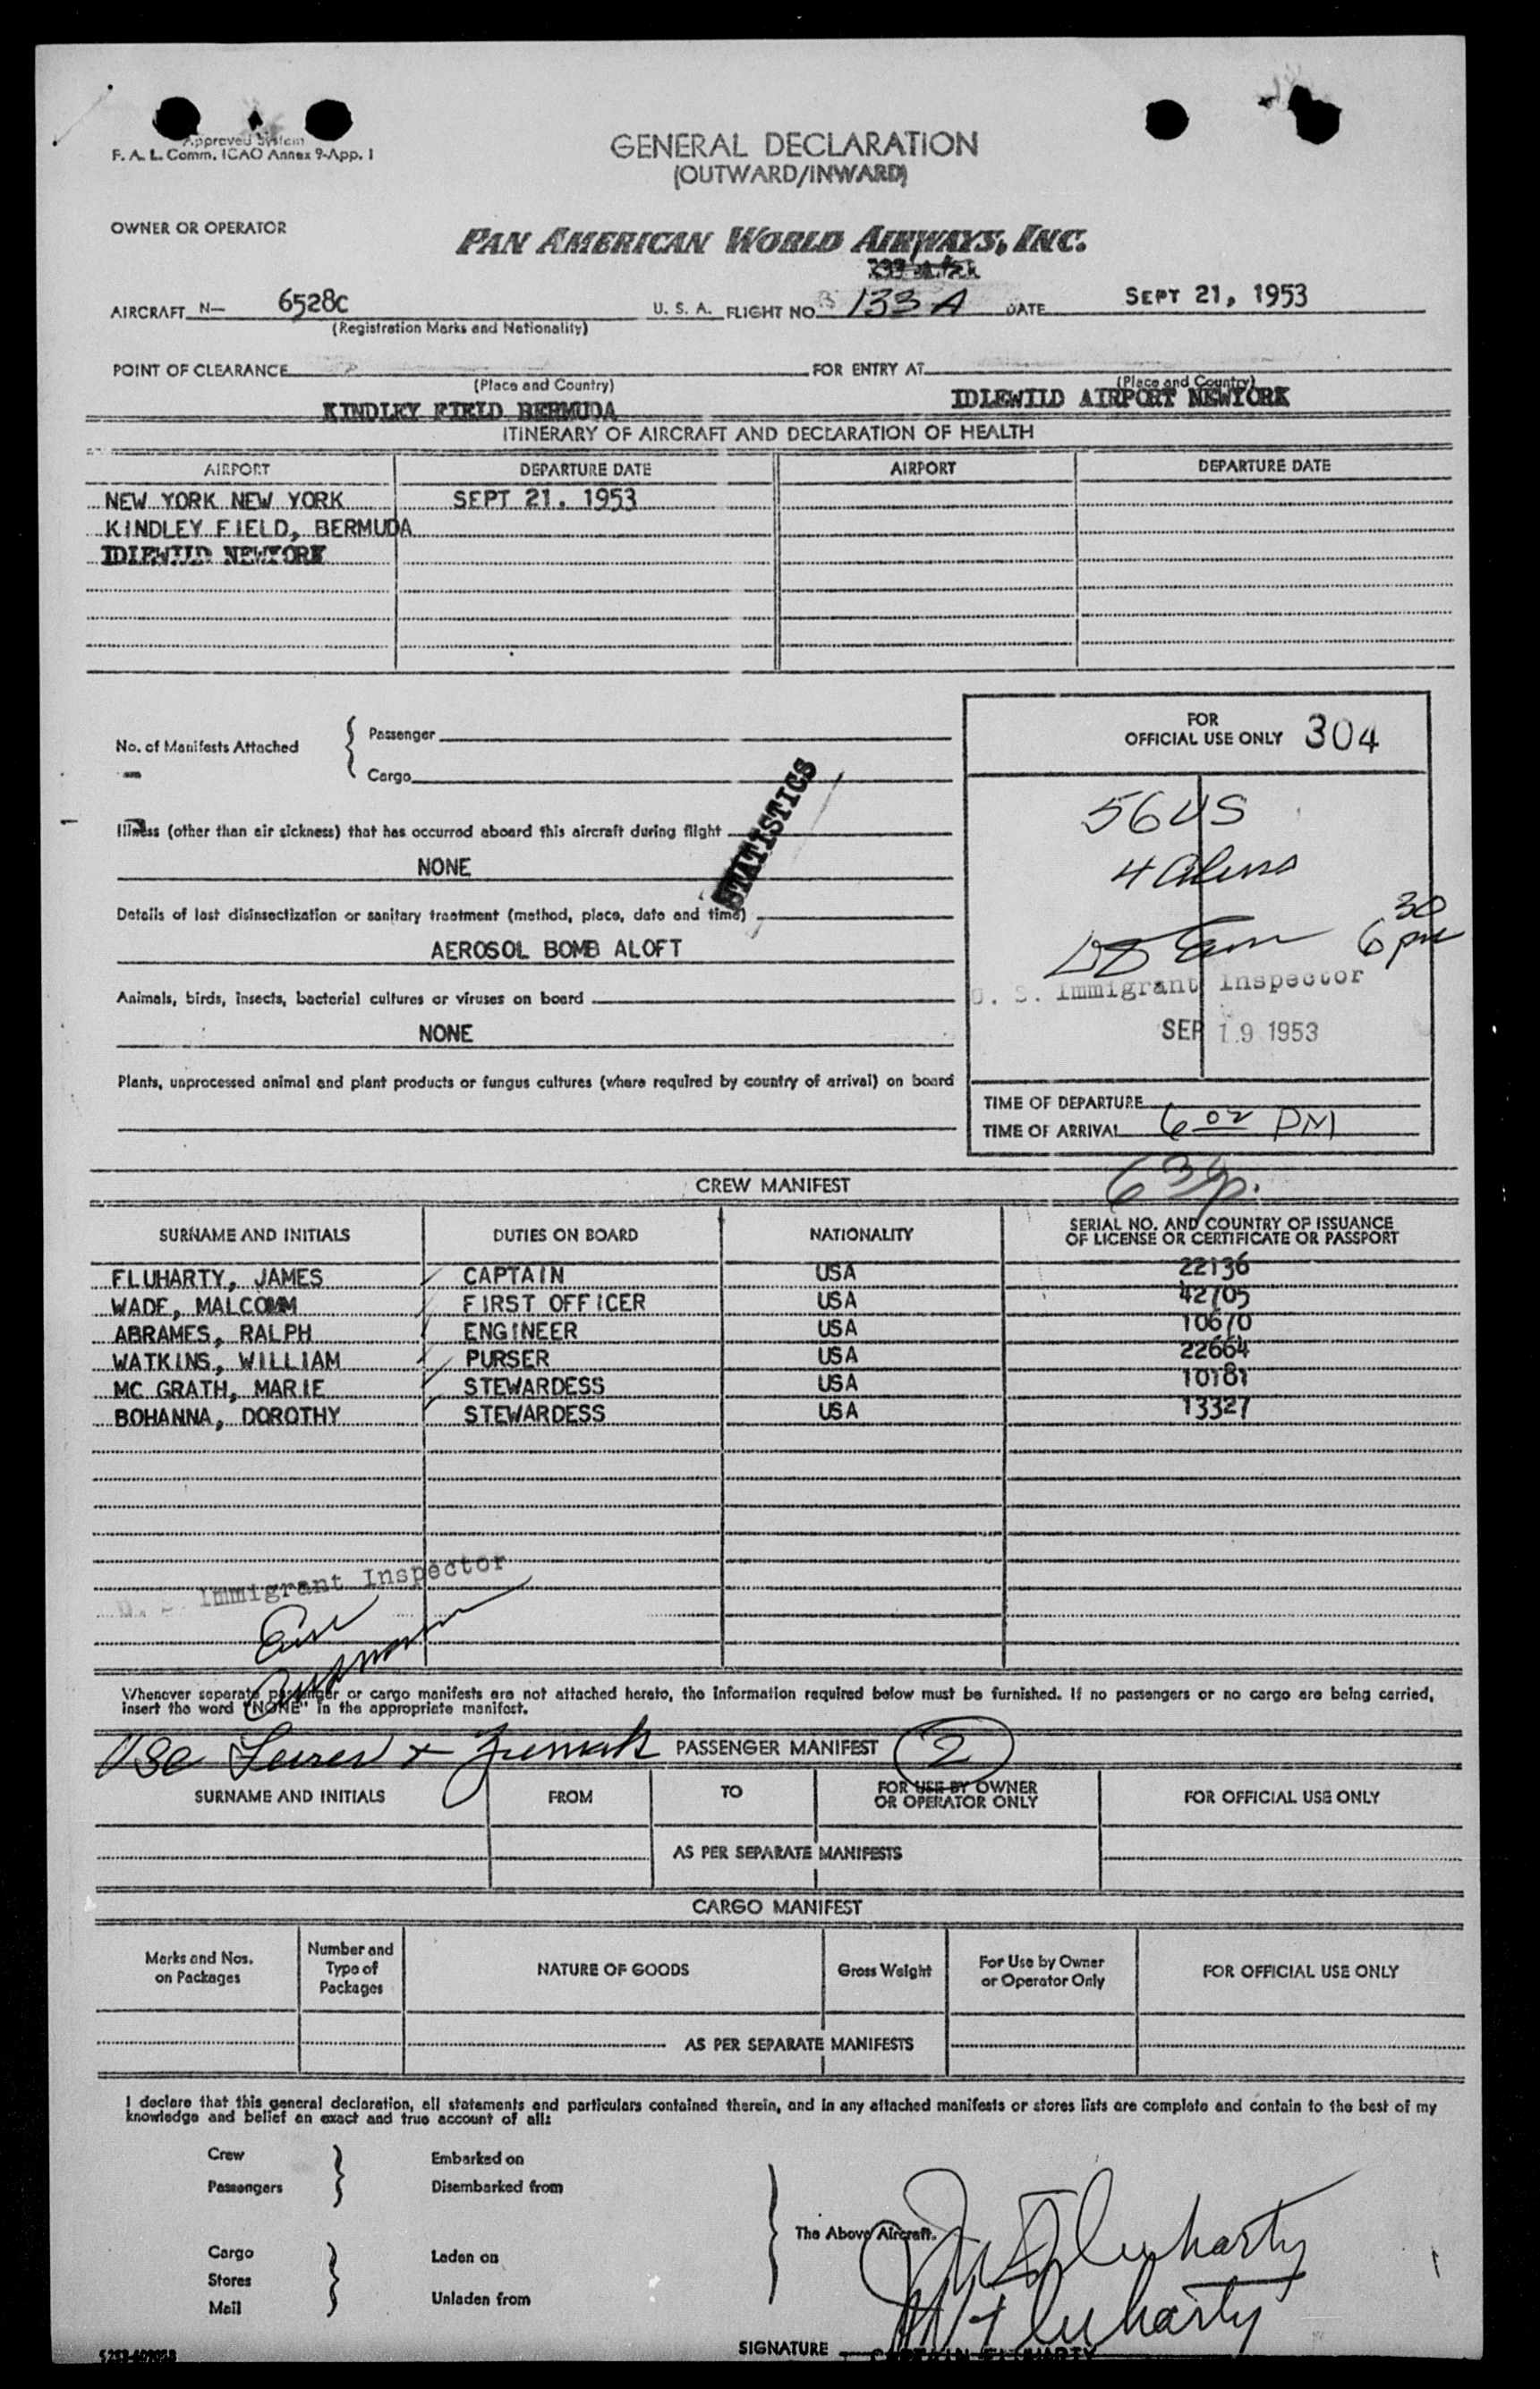 Approved System
F. A. L. Comm. ICAO Annex 9-App. 1
GENERAL DECLARATION
(OUTWARD/INWARD)
OWNER OR OPERATOR
PAN AMERICAN WORLD AIRWAYS, INC.
AIRCRAFT N- 6528C U. S. A. FLIGHT NO. 133 A DATE SEPT 21, 1953
(Registration Marks and Nationality)
POINT OF CLEARANCE FOR ENTRY AT
(Place and Country) (Place and Country)
KINDLEY FIELD BERMUDA IDLEWILD AIRPORT NEWYORK
ITINERARY OF AIRCRAFT AND DECLARATION OF HEALTH
AIRPORT DEPARTURE DATE AIRPORT DEPARTURE DATE
NEW YORK NEW YORK SEPT 21. 1953
KINDLEY FIELD, BERMUDA
IDLEWILD NEWYORK
FOR
OFFICIAL USE ONLY 304
No. of Manifests Attached
Passenger
Cargo
STATISTICS
56 US
4 Aliens
Illness (other than air sickness) that has occurred aboard this aircraft during flight
NONE
Details of last disinsectization or sanitary treatment (method, place, date and time)
AEROSOL BOMB ALOFT
6 30 pm
U. S. Immigrant Inspector
SEP 19 1953
Animals, birds, insects, bacterial cultures or viruses on board
NONE
Plants, unprocessed animal and plant products or fungus cultures (where required by country of arrival) on board
TIME OF DEPARTURE
TIME OF ARRIVAL 6 02 PM
CREW MANIFEST
SURNAME AND INITIALS DUTIES ON BOARD NATIONALITY SERIAL NO. AND COUNTRY OF ISSUANCE
OF LICENSE OR CERTIFICATE OR PASSPORT
FLUHARTY, JAMES CAPTAIN USA 22136
WADE, MALCOMM FIRST OFFICER USA 42705
ABRAMES, RALPH ENGINEER USA 10670
WATKINS, WILLIAM PURSER USA 22664
MC GRATH, MARIE STEWARDESS USA 10181
BOHANNA, DOROTHY STEWARDESS USA 13327
U. S. Immigrant Inspector
Whenever separate passenger or cargo manifests are not attached hereto, the information required below must be furnished. If no passengers or no cargo are being carried,
insert the word "NONE" in the appropriate manifest.
PASSENGER MANIFEST 2
SURNAME AND INITIALS FROM TO FOR USE BY OWNER
OR OPERATOR ONLY FOR OFFICIAL USE ONLY
AS PER SEPARATE MANIFESTS
CARGO MANIFEST
Marks and Nos.
on Packages Number and
Type of
Packages NATURE OF GOODS Gross Weight For Use by Owner
or Operator Only FOR OFFICIAL USE ONLY
AS PER SEPARATE MANIFESTS
I declare that this general declaration, all statements and particulars contained therein, and in any attached manifests or stores lists are complete and contain to the best of my
knowledge and belief an exact and true account of all:
Crew Embarked on
Passengers Disembarked from
The Above Aircraft.
Cargo Laden on
Stores
Mail Unladen from
Fluharty
Fluharty
SIGNATURE CAPTAIN FLUHARTY